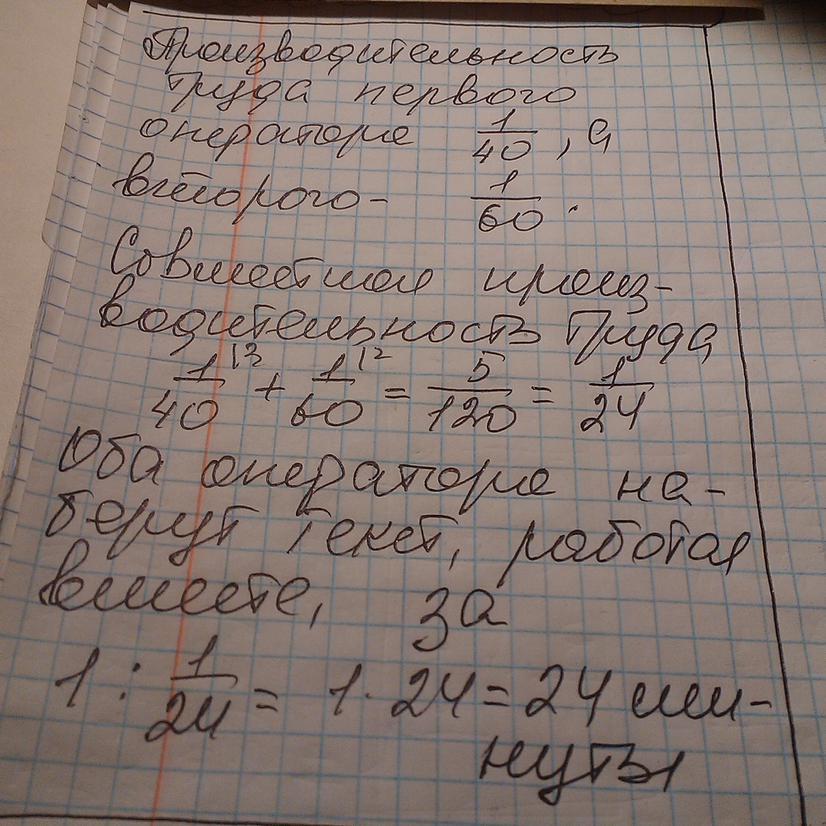 Производительность
труда первого
оператора 1/40, а
второго - 1/60.
Совместная произ-
водительность труда
1/40 |3 + 1/60 |2 = 5/120 = 1/24
Оба оператора на-
берут текст, работая
вместе, за
1 : 1/24 = 1 · 24 = 24 ми-
нуты